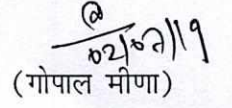 02/07/19
(गोपाल मीणा)